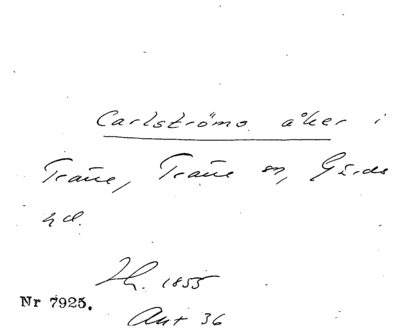 Carlströms åker i
Träne, Träne sn, Gärds
hd.
Th. 1855
Nr 7925.
Ant 36